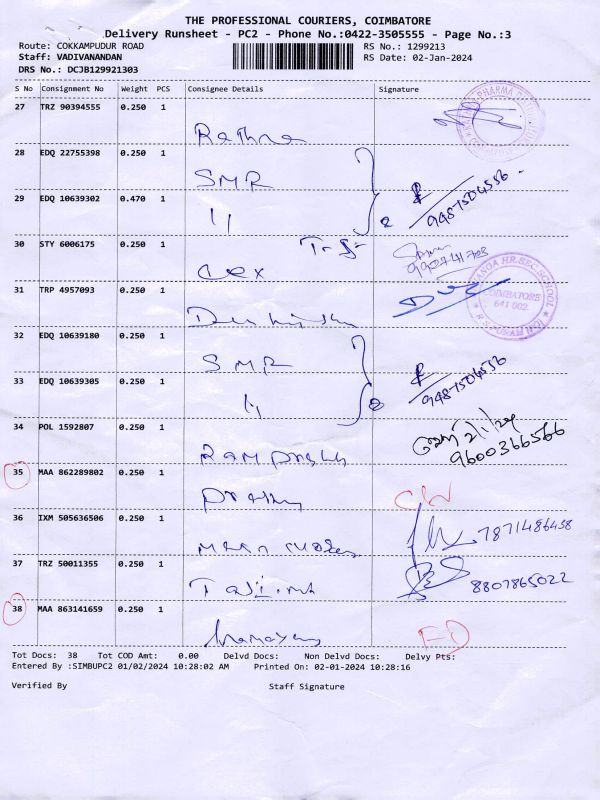 THE PROFESSIONAL COURIERS, COIMBATORE
Delivery Runsheet - PC2 - Phone No.:0422-3505555 - Page No.:3
Route: COKKAMPUDUR ROAD RS No.: 1299213
Staff: VADIVANANDAN RS Date: 02-Jan-2024
DRS No.: DCJB129921303
S No Consignment No Weight PCS Consignee Details Signature
27 TRZ 90394555 0.250 1
Rathna
28 EDQ 22755398 0.250 1
SMR
29 EDQ 10639302 0.470 1
9487504556
30 STY 6006175 0.250 1
31 TRP 4957093 0.250 1
COIMBATORE
641 002
32 EDQ 10639180 0.250 1
SMR
33 EDQ 10639305 0.250 1
9487504556
34 POL 1592807 0.250 1
9600366566
35 MAA 862289802 0.250 1
36 IXM 505636506 0.250 1
7871486458
37 TRZ 50011355 0.250 1
8807865022
38 MAA 863141659 0.250 1
Tot Docs: 38 Tot COD Amt: 0.00 Delvd Docs: Non Delvd Docs: Delvy Pts:
Entered By :SIMBUPC2 01/02/2024 10:28:02 AM Printed On: 02-01-2024 10:28:16
Verified By Staff Signature